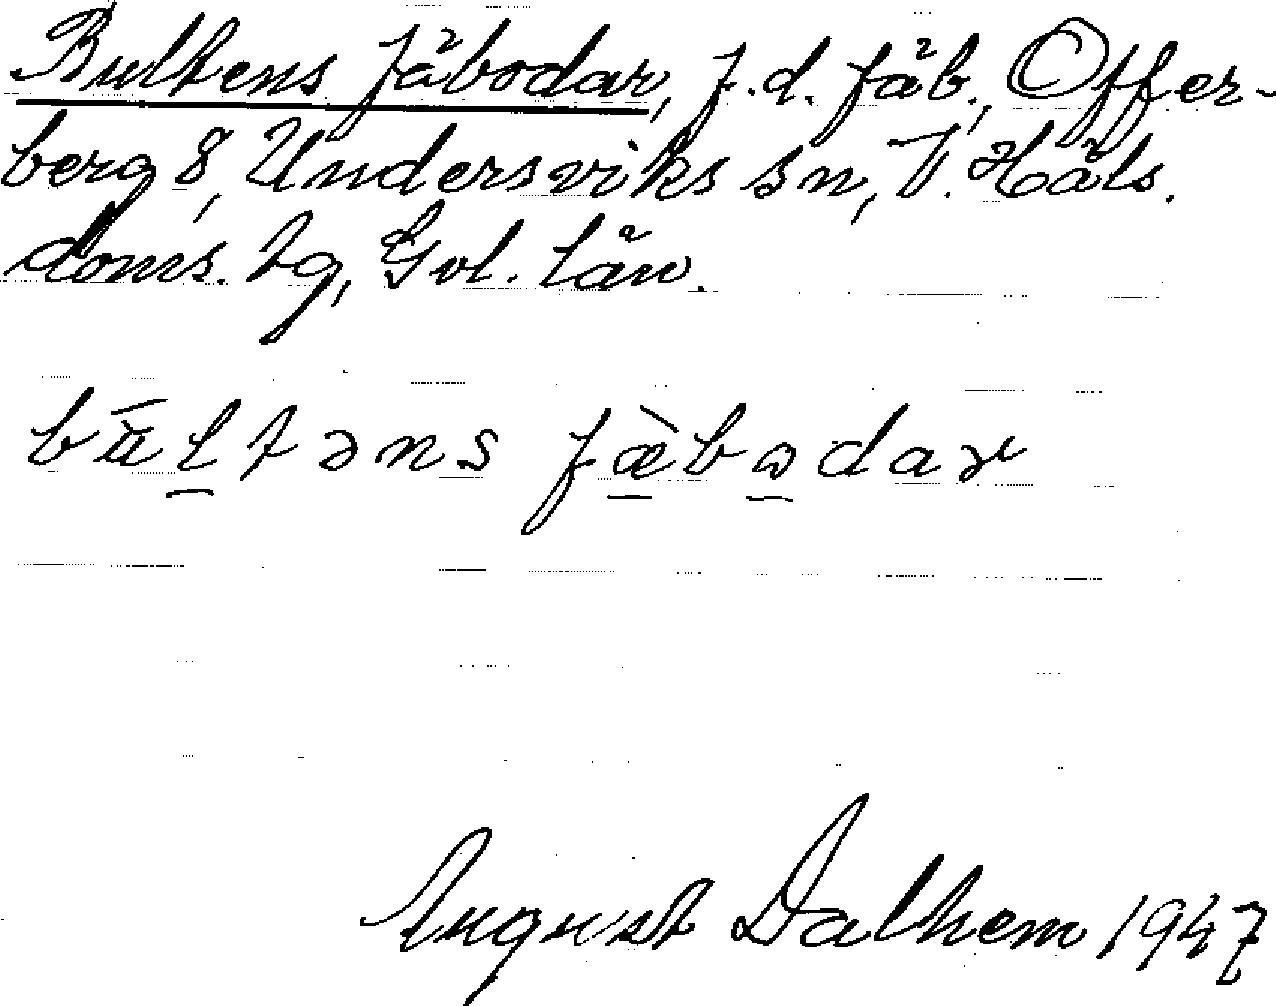 Bultens fäbodar, f.d. fäb., Offer-
berg 8, Undersviks sn, V. Häls.
doms. tg, Gvl. län.
bu̇ltəns fæ̀bɷdar
August Dalhem 1947